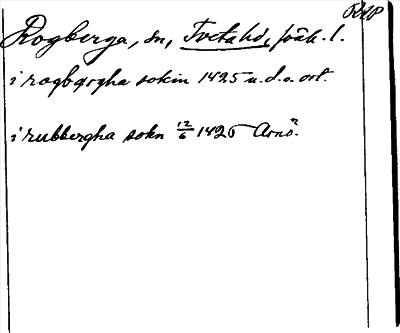 RAP
Rogberga, sn, Tveta hd, Jönk. l.
i rogbærgha sokin 1425 u.d.o. ort.
i rubbergha sokn 12/6 1425 Arnö.